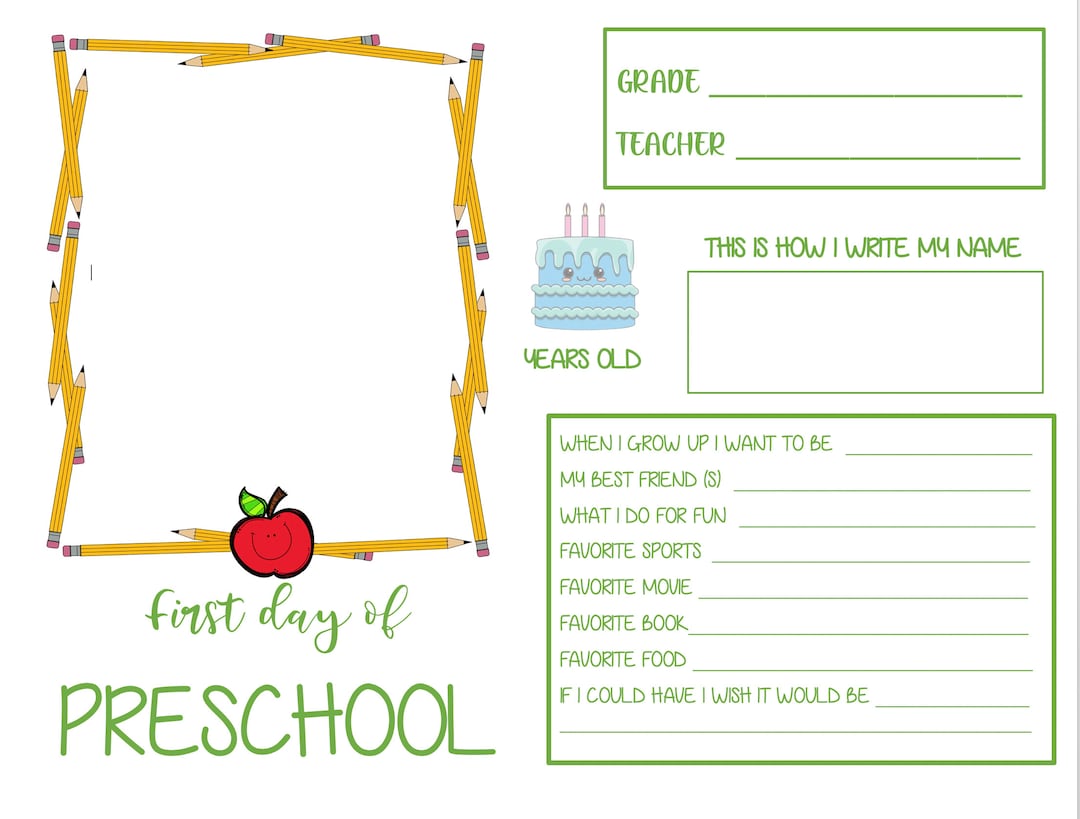 First day of
PRESCHOOL
GRADE
TEACHER
YEARS OLD
THIS IS HOW I WRITE MY NAME
WHEN I GROW UP I WANT TO BE
MY BEST FRIEND (S)
WHAT I DO FOR FUN
FAVORITE SPORTS
FAVORITE MOVIE
FAVORITE BOOK
FAVORITE FOOD
IF I COULD HAVE I WISH IT WOULD BE